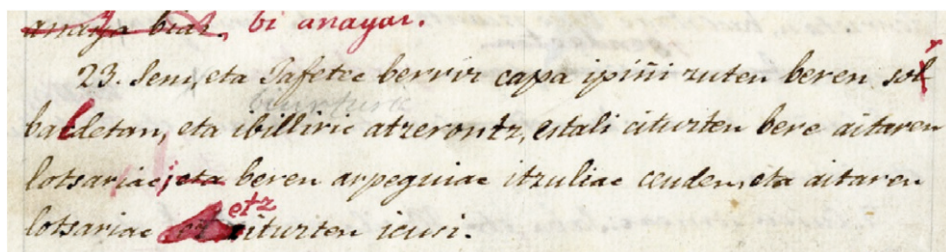 anaya biai, bi anayai.
23. Sem, eta Jafetec berriz capa ipiñi zuten beren sol
biurturic
baldetan, eta ibilliric atzerontz, estali cituzten bere aitaren
lotsariac; eta beren arpeguiac itzuliac ceuden, eta aitaren
etz
lotsariac ez cituzten icusi.